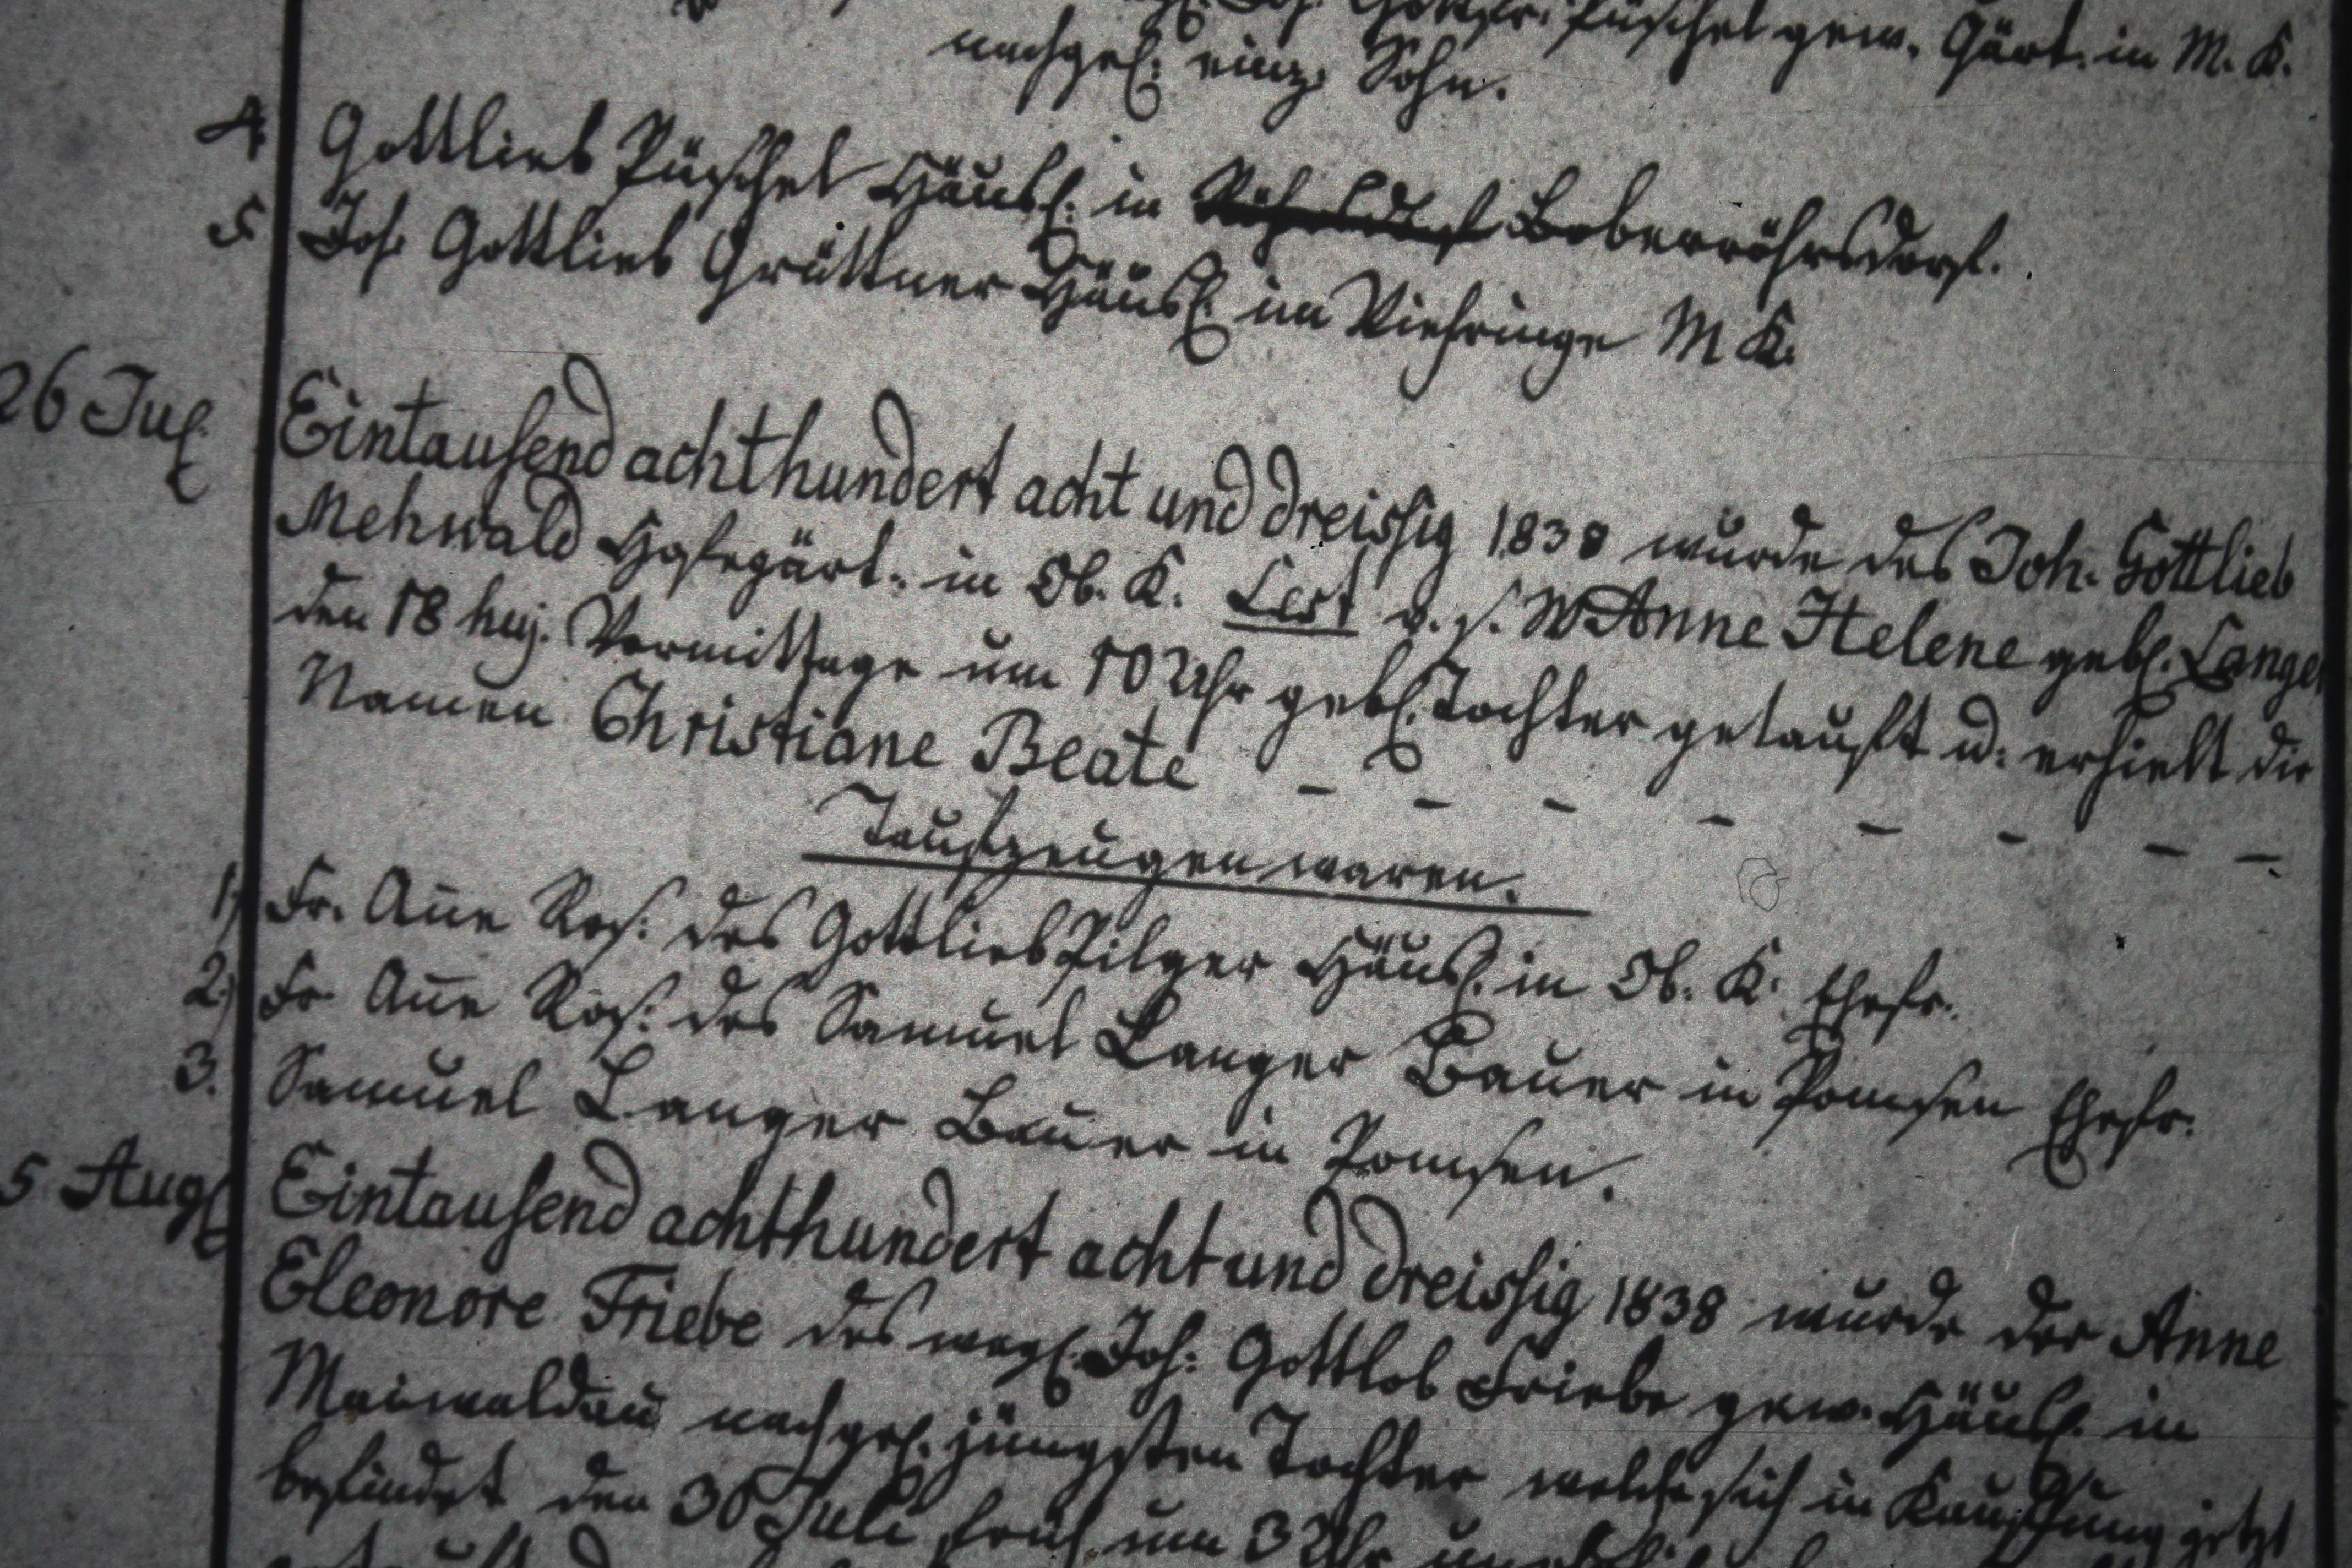 Joh. Gottfr. Püschel gew. Gärt. in M. K.
nachgel. einz. Sohn.
4. Gottlieb Püschel Häusl. in Boberröhrsdorf.
5 Joh. Gottlieb Grüttner Häusl. im Viehringe M K.
26 Jul. Eintausend achthundert acht und dreissig 1838 wurde des Joh. Gottlieb
Mehwald Hofegärt. in Ob. K. Lest v. s. W Anne Helene gebl. Langer
den 18 huj. Vormittage um 10 Uhr gebl. Tochter getauft u. erhielt die
Namen Christiane Beate - - - - - - - -
Taufzeugen waren.
1) Fr. Añe Ros. des Gottlieb Pilger Häusl. in Ob. K. Ehefr.
2.) Fr Añe Ros. des Samuel Langer Bauer in Pomsen Ehefr.
3. Samuel Langer Bauer in Pomsen.
5 Aug Eintausend achthundert acht und dreissig 1838 wurde der Anne
Eleonore Friebe des weyl. Joh. Gottlob Friebe gew. Häusl. in
Maiwaldau nachgel. jüngsten Tochter welche sich in Kauffung jetzt
befindet den 30 Juli früh um 3 Uhr